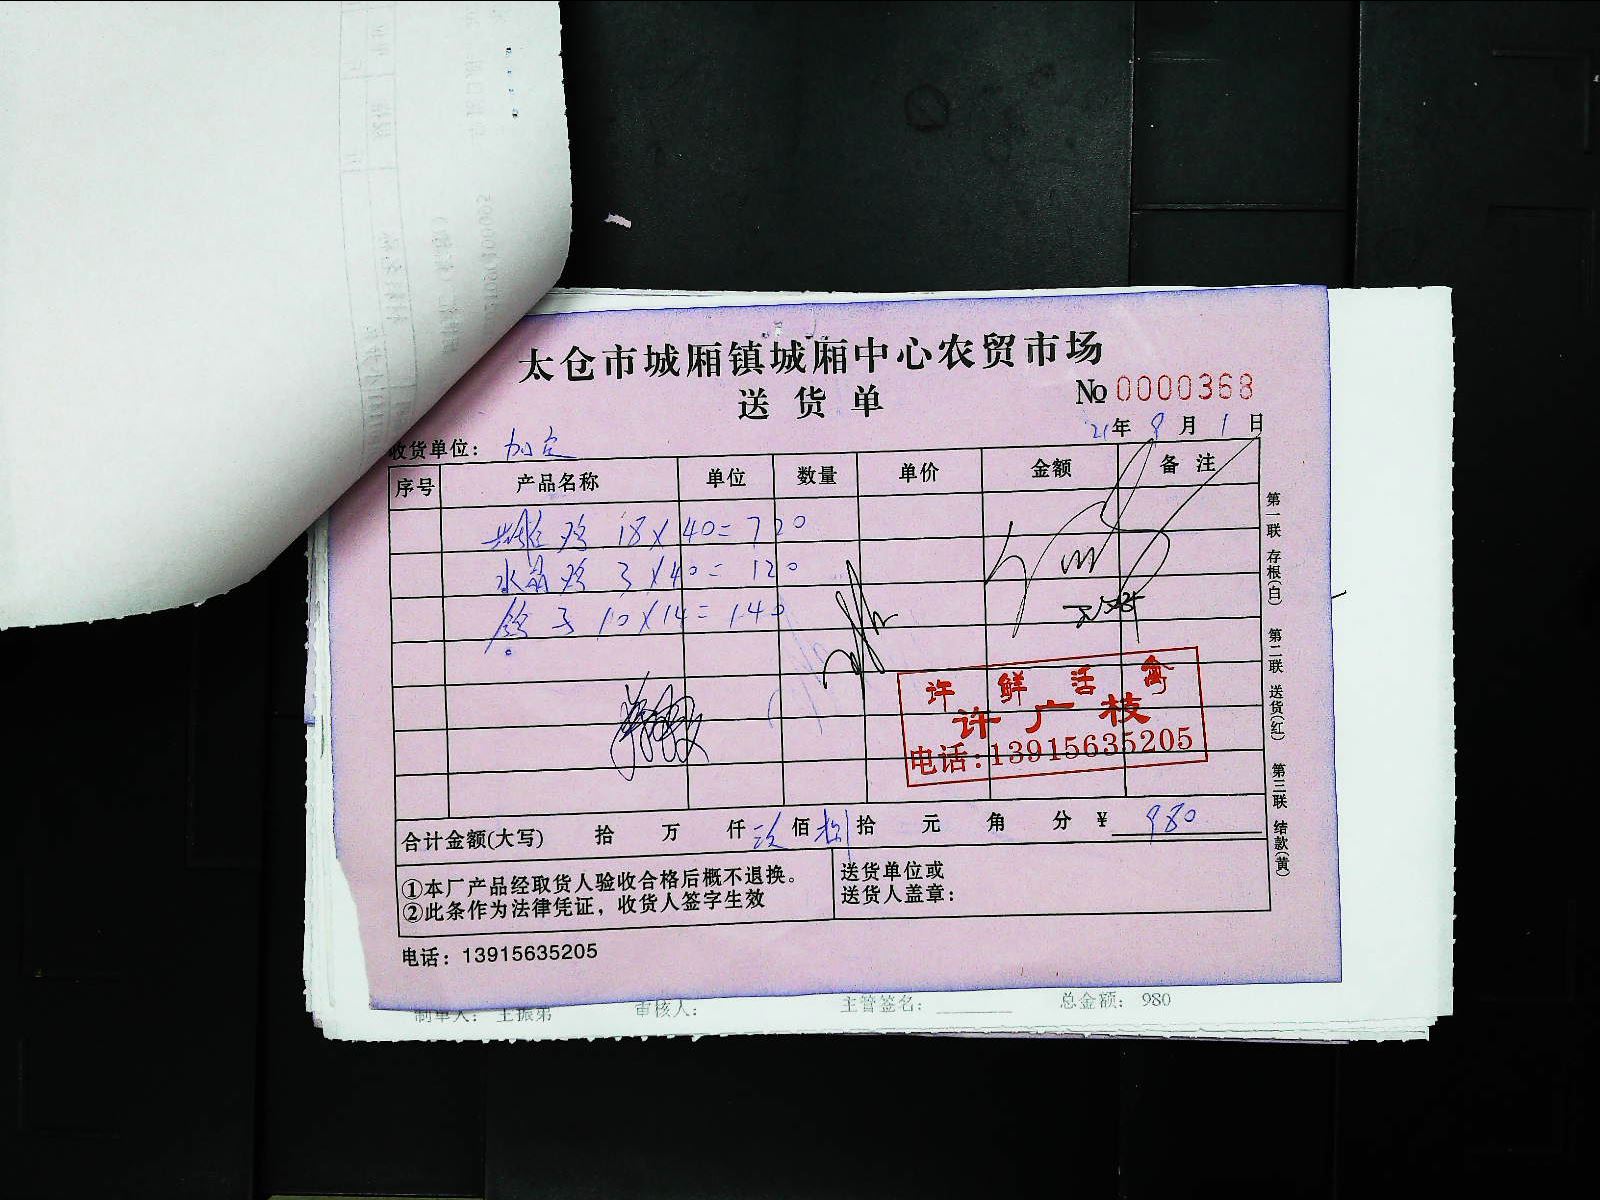 太仓市城厢镇城厢中心农贸市场
送货单
№ 0000368
21年 8月 1日
收货单位: 加定
序号 产品名称 单位 数量 单价 金额 备注
鸡 18×40=720
水晶鸡 3×40=120
鸽子 10×14=140
许 鲜 活 禽
许广枝
电话:13915635205
合计金额(大写) 拾 万 仟 玖佰 捌拾 元 角 分 ¥ 980
①本厂产品经取货人验收合格后概不退换。
②此条作为法律凭证，收货人签字生效
送货单位或
送货人盖章:
电话: 13915635205
第一联 存根(白) 第二联 送货(红) 第三联 结款(黄)
制单人: 王振弟 审核人: 主管签名: 总金额: 980